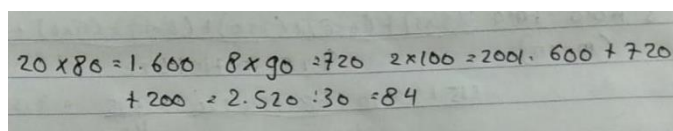 20 x 80 = 1.600 8 x 90 = 720 2 x 100 = 2001. 600 + 720
+ 200 = 2.520 : 30 = 84